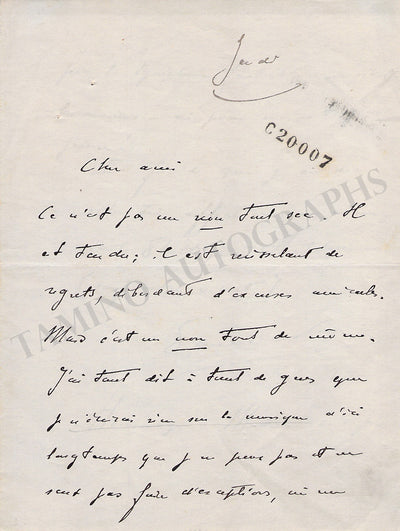 Jeudi
C20007
Cher ami
Ce n'est pas un non tout sec. Il
est tendu; il est ruisselant de
regrets, débordant d'excuses amicales.
Mais c'est un non tout de même.
J'ai tant dit à tant de gens que
je n'écrirai rien sur la musique d'ici
longtemps que je ne peux pas et ne
veux pas faire d'exceptions, ni un
TAMINO AUTOGRAPHS